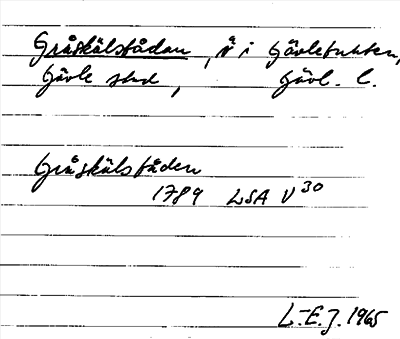 Gråskälsfådan, å i Gävlebukten,
Gävle stad, Gävl. l.
Gråskälsfåden
1789 LSA V 30
L-E.J. 1965